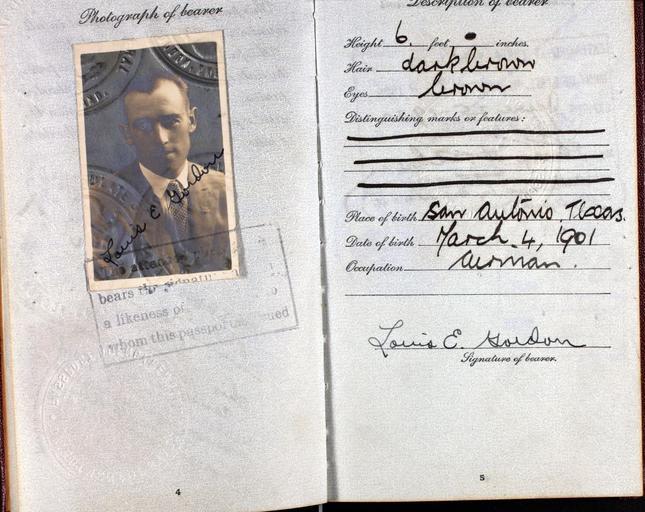 Photograph of bearer
Louis E Gordon
bears the signat
a likeness of
whom this passport
4
Description of bearer
Height 6 feet inches.
Hair dark brown
Eyes brown
Distinguishing marks or features:
Place of birth San Antonio, Texas.
Date of birth March 4, 1901
Occupation airman.
Louis E. Gordon
Signature of bearer.
5